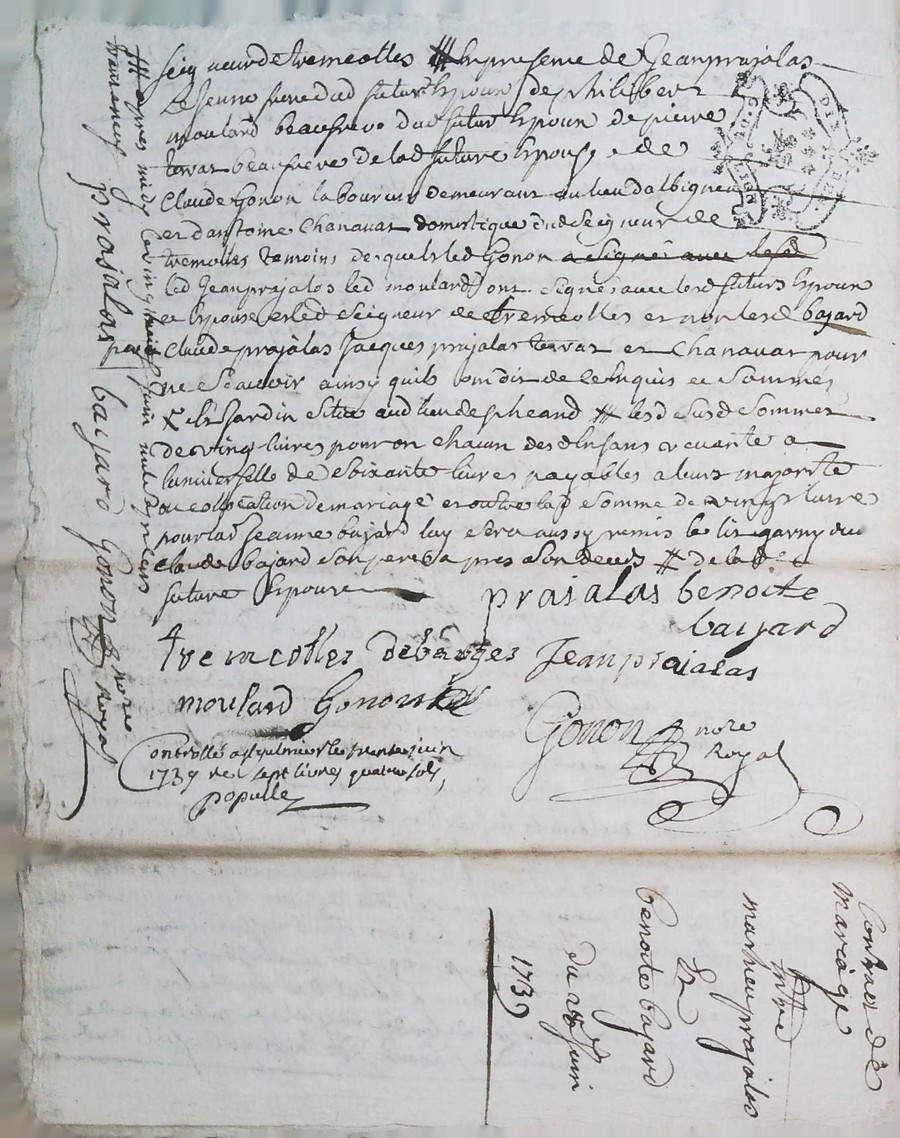 seigneur de tremeolles # En presence de Jean prajalas
Le jeune frere dud futur Epoux de philibert
moulard beaufrere dud futur Epoux de pierre
terras beaufrere de lad future Epouse e de
Claude Gonon laboureur demeurant au lieu dalbigneu
et dantoine Chanavat domestique dud seigneur de
tremolles temoins desquels led Gonon a signé avec lesd
led Jean prajalas led moulard ont signés avec lesd futurs Epoux
et Epouse et led seigneur de tremeolles et non lesd bajard
Claude prajalas Jacques prajalas terras et Chanavat pour
ne scavoir ainsy quils ont dit de ce Enquis et sommés
X et Jardin situé aud lieu de # lesdsus de sommer
de vingt livres pour un chacun des Enfans a
luniverselle de soixante livres payables a leurs majorite
ou collocation de mariage et outre lad somme de vingt livre
pour lad Jeanne bajard luy sera aussy remis le lit garny du
Claude bajard son pere a pres son deceds # de lad
future Epouse
prajalas benoite
bajard
tremeolles debarges Jean prajalas
moulard Gonon
Gonon nore
Royal
Controllé a le trente juin
1739 rec sept livres quatre sols
populle
# apres midy le vingt juin mil sept cens
trente neuf prajalas bajard Gonon nore Royal
Contract de
Mariage
Entre
mathieu prajalas
Et
benoite bajard
du 28 Juin
1739